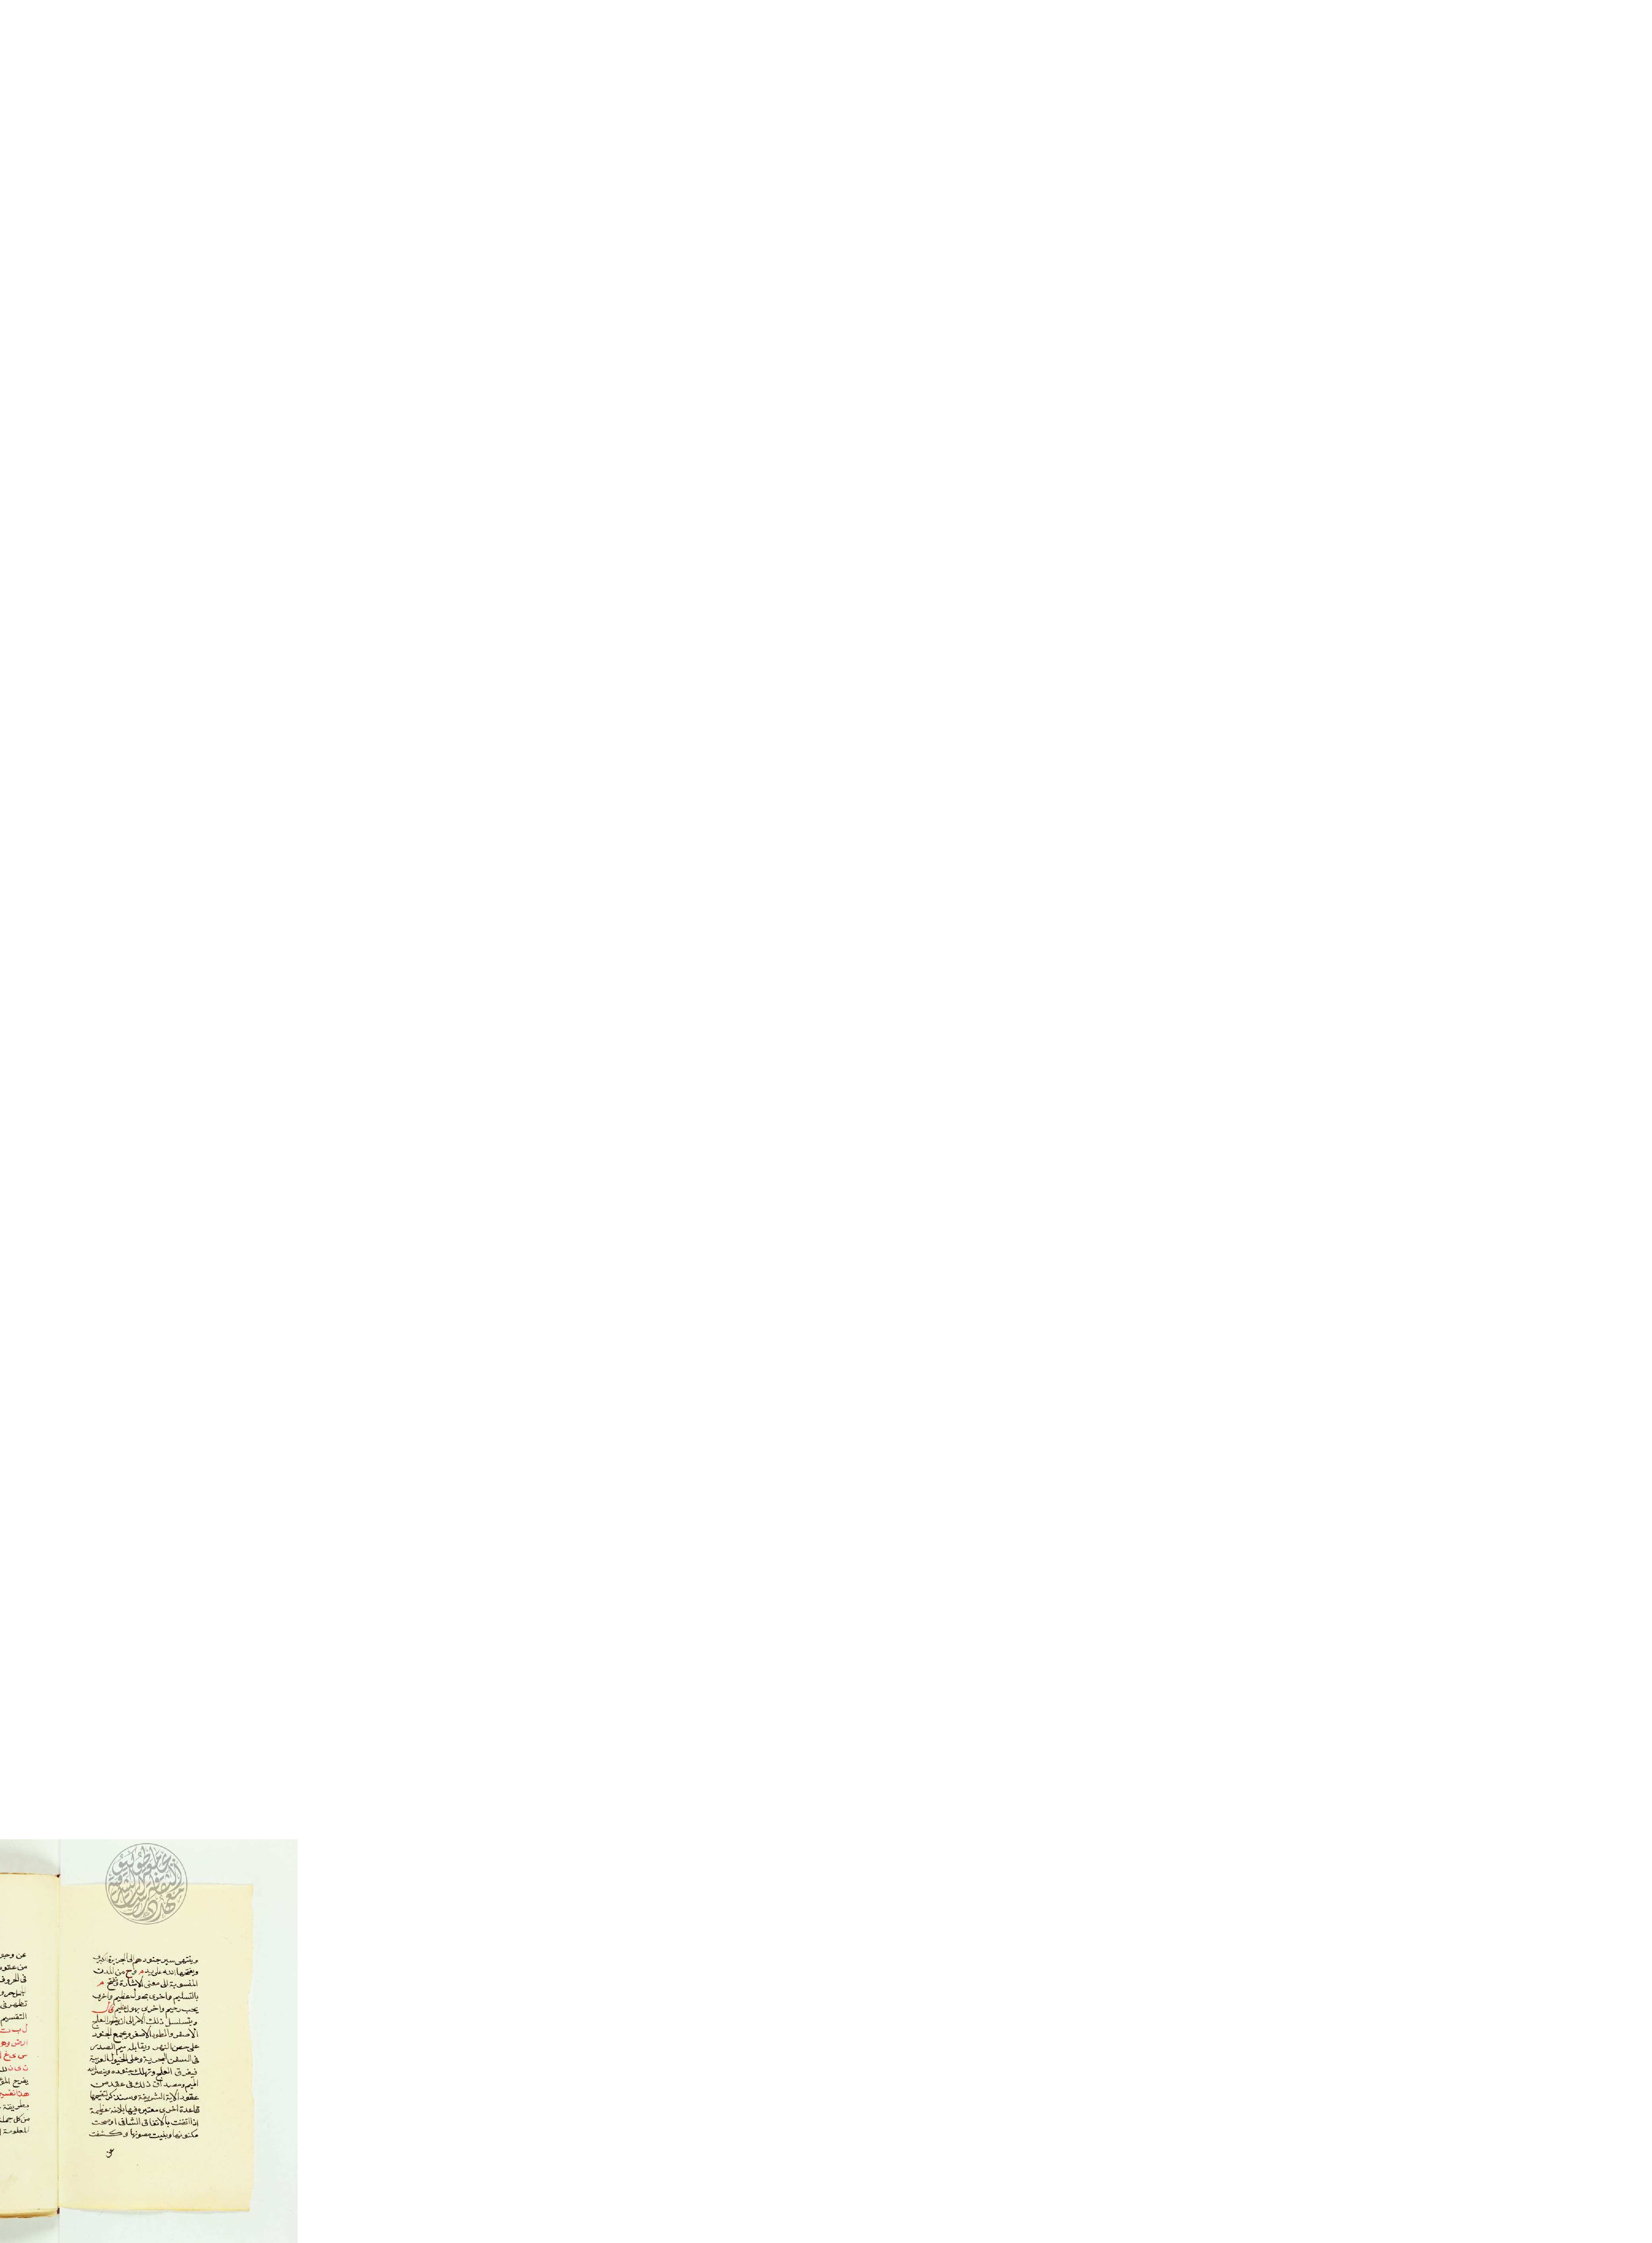 وينتهى سير جنود حم الى الجزيرة الكبرى
ويفتحها الله على يد م وح من المدن
المنسوبة الى معنى الاشارة فتفتح م
بالتسليم واخرى بحول عظيم واخرى
بحب رحيم واخرى بهول عظيم
ويتسلسل ذلك الامر الى ان يظهر العلج
الاصفر والمطور الاصغر ويجمع الجنود
على صحن النهر ويقابله ميم الصدر
فى السفن البحرية وعلى الخيول العربية
فيغرق العلج وتهلك جنوده وينصر الله
الميم ومصداق ذلك فى عقد من
عقود الآية الشريفة وسنذكر تقسيمها
قاعدة اخرى معتبره فيها بلاغة عظيمة
اذا اتقنت بالاتفاق الشافى اوضحت
مكنونها وبينت مصونها وكشفت
عن
عن وجه
من عقود
فى الحروف
تظهر فى
التقسيم
ل ب مت
يفرح
هذا تقسيم
بطريقة
من كل جملة
المعلومة